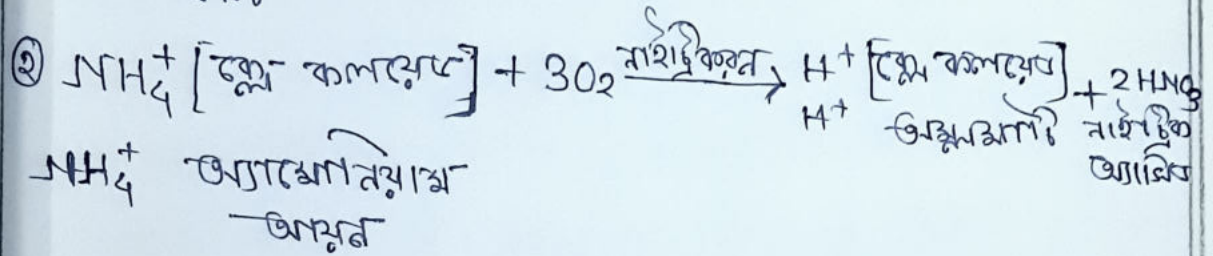 ② NH₄⁺ [ক্লে কলয়েড] + 3O₂ নাইট্রিকরন → H⁺ [ক্লে কলয়েড] + 2HNO₃
H⁺ অম্লমাটি নাইট্রিক
NH₄⁺ অ্যামোনিয়াম অ্যাসিড
আয়ন